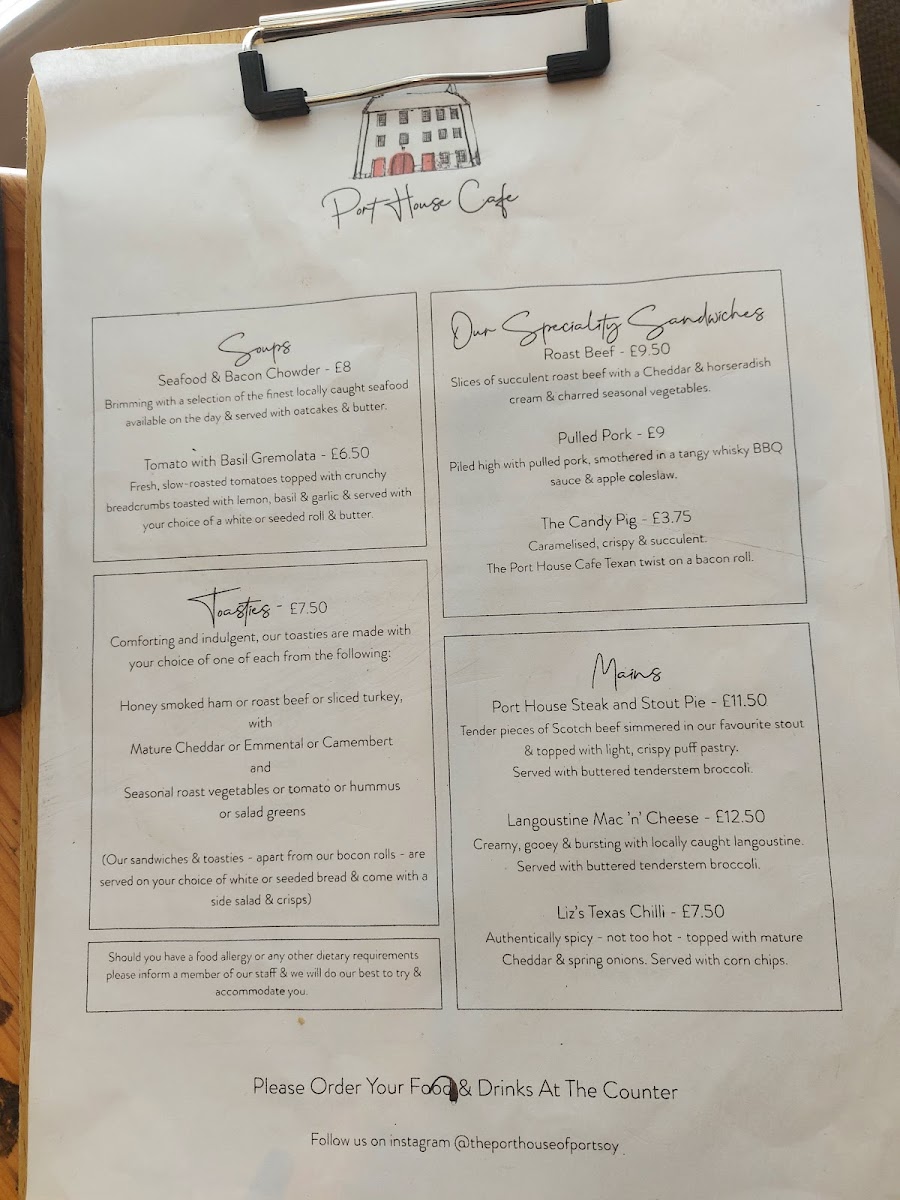 Port House Cafe
Soups
Seafood & Bacon Chowder - £8
Brimming with a selection of the finest locally caught seafood
available on the day & served with oatcakes & butter.
Tomato with Basil Gremolata - £6.50
Fresh, slow-roasted tomatoes topped with crunchy
breadcrumbs toasted with lemon, basil & garlic & served with
your choice of a white or seeded roll & butter.
Toasties - £7.50
Comforting and indulgent, our toasties are made with
your choice of one of each from the following:
Honey smoked ham or roast beef or sliced turkey,
with
Mature Cheddar or Emmental or Camembert
and
Seasonal roast vegetables or tomato or hummus
or salad greens
(Our sandwiches & toasties - apart from our bocon rolls - are
served on your choice of white or seeded bread & come with a
side salad & crisps)
Should you have a food allergy or any other dietary requirements
please inform a member of our staff & we will do our best to try &
accommodate you.
Our Speciality Sandwiches
Roast Beef - £9.50
Slices of succulent roast beef with a Cheddar & horseradish
cream & charred seasonal vegetables.
Pulled Pork - £9
Piled high with pulled pork, smothered in a tangy whisky BBQ
sauce & apple coleslaw.
The Candy Pig - £3.75
Caramelised, crispy & succulent.
The Port House Cafe Texan twist on a bacon roll.
Mains
Port House Steak and Stout Pie - £11.50
Tender pieces of Scotch beef simmered in our favourite stout
& topped with light, crispy puff pastry.
Served with buttered tenderstem broccoli.
Langoustine Mac 'n' Cheese - £12.50
Creamy, gooey & bursting with locally caught langoustine.
Served with buttered tenderstem broccoli.
Liz's Texas Chilli - £7.50
Authentically spicy - not too hot - topped with mature
Cheddar & spring onions. Served with corn chips.
Please Order Your Food & Drinks At The Counter
Follow us on instagram @theporthouseofportsoy